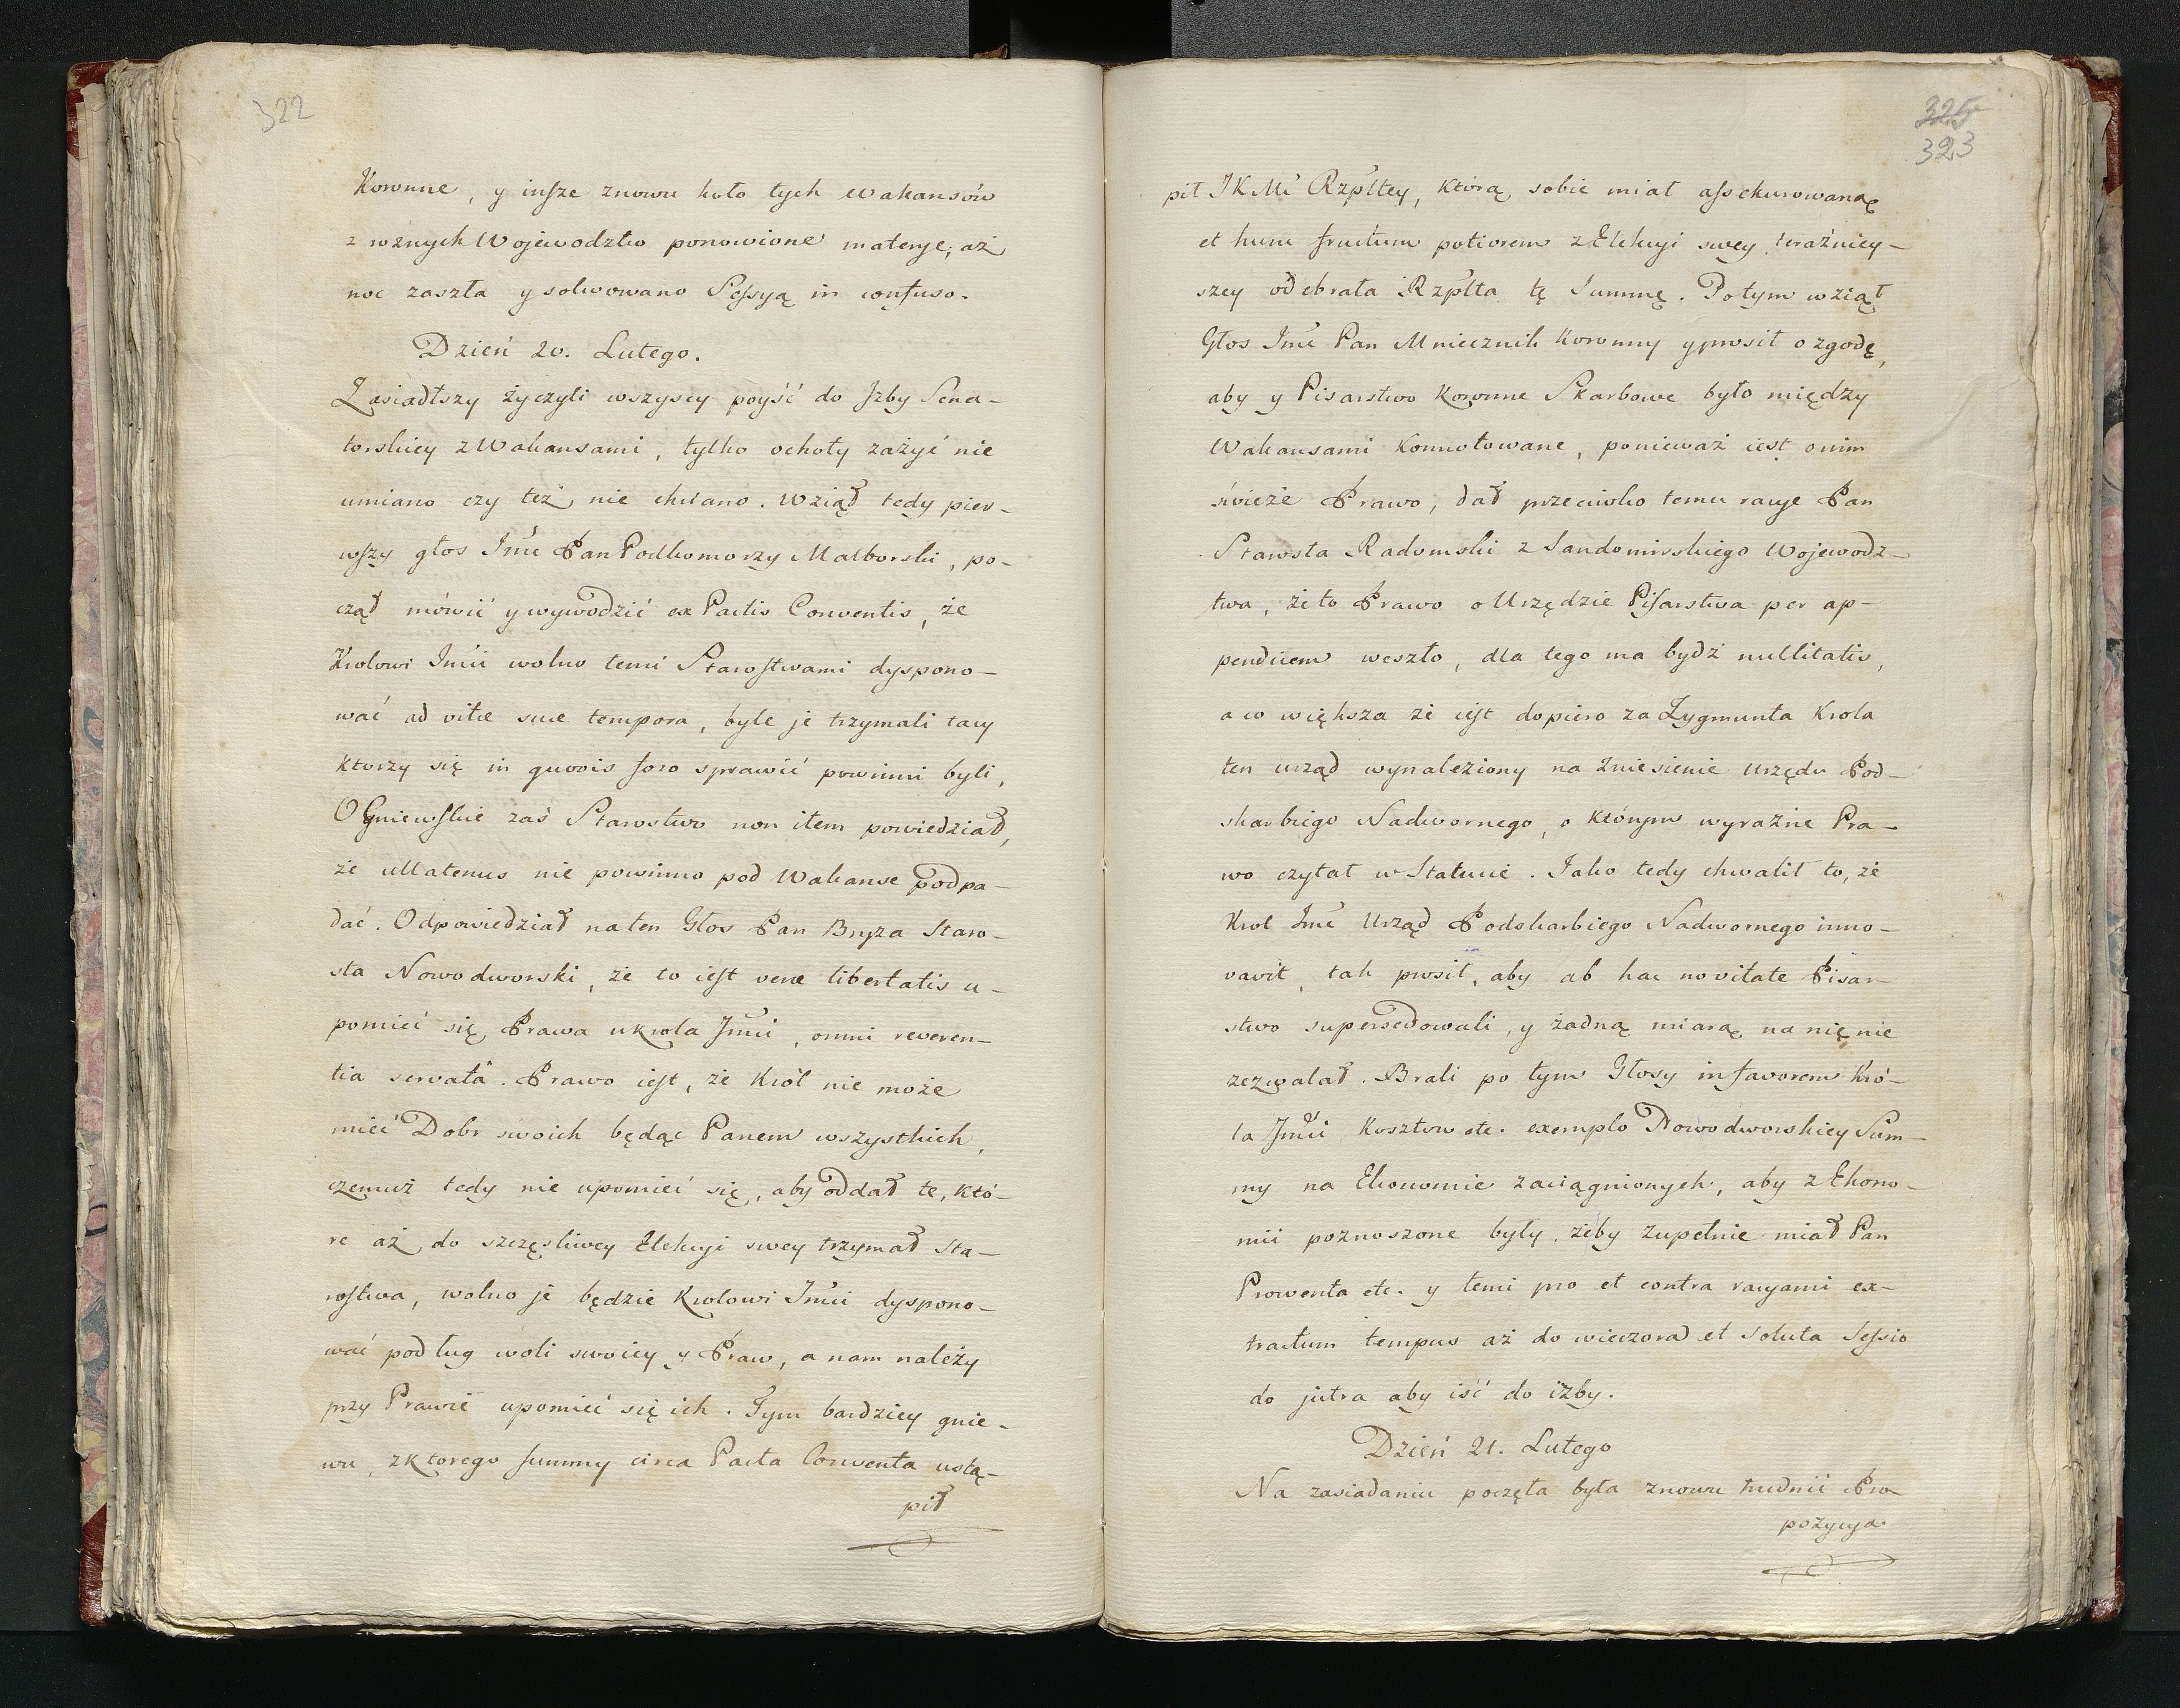 322
Koronne, y insze znowu koło tych Wakansów
z roznych Wojewodztw ponowione materye; aż
noc zaszła y solwowano Sessyą in confuso.
Dzień 20. Lutego.
Zasiadłszy życzyli wszyscy poyść do Izby Sena-
torskiey z Wakansami, tylko ochoty zażyć nie
umiano czy też nie chciano. Wziął tedy pier-
wszy głos Jmć Pan Podkomorzy Malborski, po-
czął mówić y wywodzić ex Pactis Conventis, że
Krolowi Jmći wolno temi Starostwami dyspono-
wać ad vitæ suæ tempora, byle je trzymali tacy
ktorzy się in quovis foro sprawić powinni byli,
O Gniewskie zaś Starostwo non item powiedział,
że ullatenus nie powinno pod Wakanse podpa-
dać. Odpowiedział na ten Głos Pan Bryza Staro-
sta Nowodworski, że to iest veræ libertatis u-
pomieć się Prawa u Krola Jmći, omni reveren-
tia servatâ. Prawo iest, że Król nie może
mieć Dobr swoich będąc Panem wszystkich,
czemuż tedy nie upomieć się, aby oddał te, któ-
re aż do szczęsliwey Elekcyi swey trzymał Sta-
rostwa, wolno je będzie Krolowi Jmći dyspono-
wać podług woli swoiey y Praw, a nam należy
przy Prawie upomieć się ich. Tym bardziey gnie-
wu, z ktorego summy circa Pacta Conventa ustą-
pił
325
323
pił JKMć Rzpltey, którą sobie miał assekurowaną
et hunc fructum potiorem z Elekcyi swey teraźniey-
szey odebrała Rzplta tę Summę. Potym wziął
Głos Jmć Pan Miecznik Koronny y prosił o zgodę,
aby y Pisarstwo Koronne Skarbowe było między
Wakansami konnotowane, ponieważ iest o nim
świeże Prawo, dał przeciwko temu racye Pan
Starosta Radomski z Sandomirskiego Wojewodz-
twa, że to Prawo o Urzędzie Pisarstwa per ap-
pendicem weszło, dla tego ma bydź nullitatis,
a co większa że iest dopiero za Zygmunta Krola
ten urząd wynaleziony na zniesienie Urzędu Pod-
skarbiego Nadwornego, o którym wyraźne Pra-
wo czytał w Statucie. Jako tedy chwalił to, że
Krol Jmć Urząd Podskarbiego Nadwornego inno-
vavit, tak prosił, aby ab hac novitate Pisar-
stwo supersedowali, y żadną miarą na nię nie
zezwalał. Brali po tym Głosy in favorem Kró-
la Jmći Kosztow etc. exemplo Nowodworskiey Sum-
my na Ekonomie zaciągnionych, aby z Ekono-
mii poznoszone były, żeby zupełnie miał Pan
Prowenta etc. y temi pro et contra racyami ex-
tractum tempus aż do wieczora et soluta Sessio
do jutra aby iść do izby.
Dzień 21. Lutego
Na zasiadaniu poczęta była znowu trudnić Pro-
pozycya